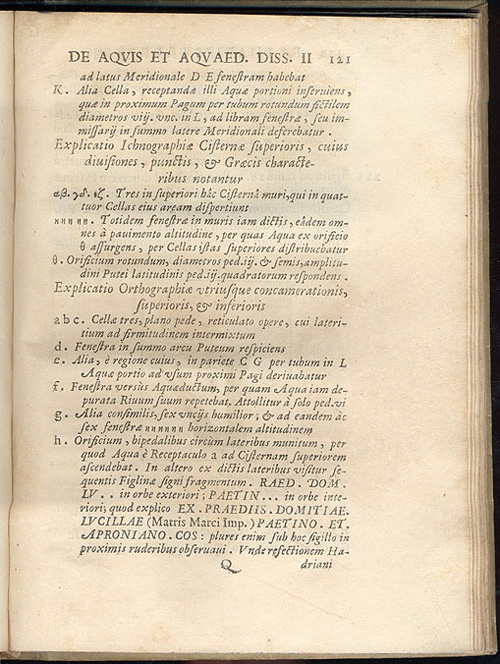 DE AQVIS ET AQVAED. DISS. II 121
ad latus Meridionale D E fenestram habebat
K. Alia Cella, receptandæ illi Aquæ portioni inseruiens,
quæ in proximum Pagum per tubum rotundum fictilem
diametros viij. vnc. in L, ad libram fenestræ, seu im-
missarij in summo latere Meridionali deferebatur.
Explicatio Ichnographiæ Cisternæ superioris, cuius
diuisiones, punctis, & Græcis characte-
ribus notantur
αβ. γδ. εζ. Tres in superiori hâc Cisternâ muri, qui in quat-
tuor Cellas eius aream dispertiunt
ηηηηη. Totidem fenestræ in muris iam dictis, eâdem om-
nes à pauimento altitudine, per quas Aqua ex orificio
θ assurgens, per Cellas istas superiores distribuebatur
θ. Orificium rotundum, diametros ped. iij. & semis, amplitu-
dini Putei latitudinis ped. iij. quadratorum respondens.
Explicatio Orthographiæ vtriusque concamerationis,
superioris, & inferioris
a b c. Cellæ tres, plano pede, reticulato opere, cui lateri-
tium ad firmitudinem intermixtum
d. Fenestra in summo arcu Puteum respiciens
e. Alia, è regione cuius, in pariete C G per tubum in L
Aquæ portio ad vsum proximi Pagi deriuabatur
f. Fenestra versùs Aquæductum, per quam Aqua iam de-
purata Riuum suum repetebat. Attollitur à solo ped. vi
g. Alia consimilis, sex vncijs humilior; & ad eandem àc
sex fenestræ ηηηηηη horizontalem altitudinem
h. Orificium, bipedalibus circùm lateribus munitum, per
quod Aqua è Receptaculo a ad Cisternam superiorem
ascendebat. In altero ex dictis lateribus visitur se-
quentis Figlinæ signi fragmentum. RAED. DOM.
LV.. in orbe exteriori; PAETIN... in orbe inte-
riori; quod explico EX. PRAEDIIS. DOMITIAE.
LVCILLAE (Matris Marci Imp.) PAETINO. ET.
APRONIANO. COS: plures enim sub hoc sigillo in
proximis ruderibus obseruaui. Vnde refectionem Ha-
Q driani